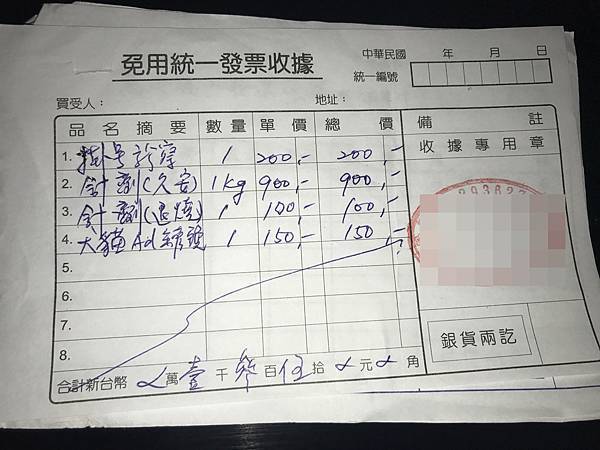 免用統一發票收據
中華民國 年 月 日
統一編號
買受人： 地址：
品名摘要 數量 單價 總價 備註
收據專用章
1. 掛号診察 1 200,- 200,-
2. 針劑(久安) 1kg 900,- 900,-
3. 針劑(退燒) 1 100,- 100,-
4. 犬貓Ad罐頭 1 150,- 150,-
5.
6.
7.
8.
銀貨兩訖
合計新台幣 萬壹千參百伍拾 元 角